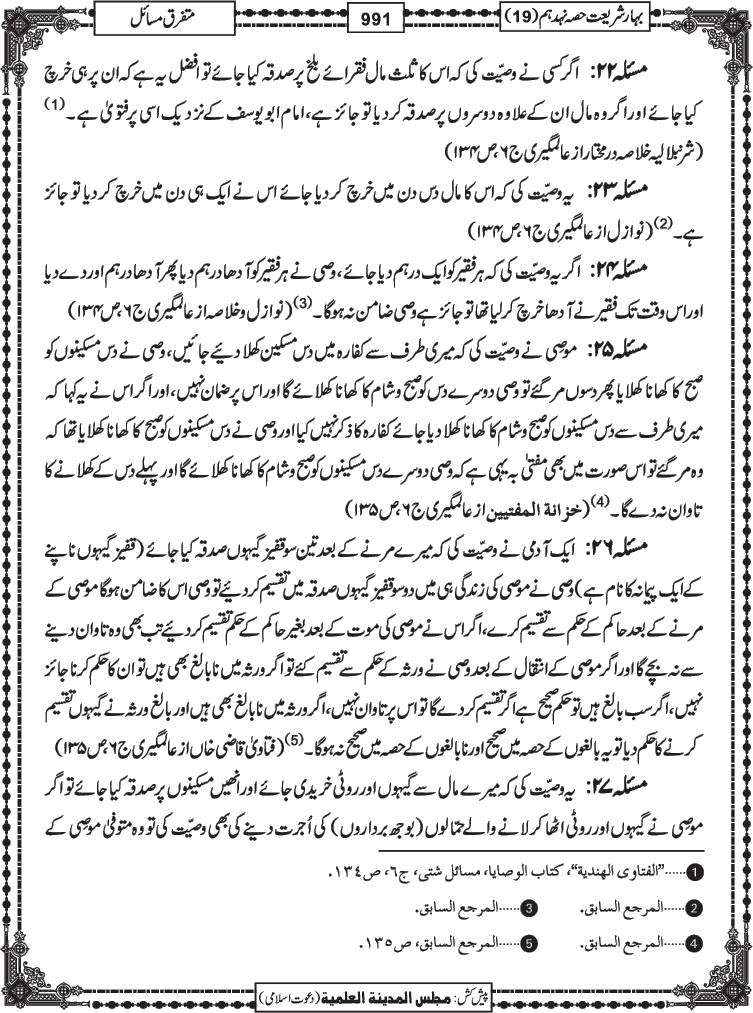 بہار شریعت حصہ نہدہم (19)
991
متفرق مسائل
مسئلہ ۲۲: اگر کسی نے وصیّت کی کہ اس کا ثلث مال فقرائے بلخ پر صدقہ کیا جائے تو افضل یہ ہے کہ ان پر ہی خرچ
کیا جائے اور اگر وہ مال ان کے علاوہ دوسروں پر صدقہ کر دیا تو جائز ہے، امام ابو یوسف کے نزدیک اسی پر فتویٰ ہے۔(1)
(شرنبلالیہ خلاصہ درمختار از عالمگیری ج۶، ص۱۳۴)
مسئلہ ۲۳: یہ وصیّت کی کہ اس کا مال دس دن میں خرچ کر دیا جائے اس نے ایک ہی دن میں خرچ کر دیا تو جائز
ہے۔(2) (نوازل از عالمگیری ج۶، ص۱۳۴)
مسئلہ ۲۴: اگر یہ وصیّت کی کہ ہر فقیر کو ایک درہم دیا جائے، وصی نے ہر فقیر کو آدھا درہم دیا پھر آدھا درہم اور دے دیا
اور اس وقت تک فقیر نے آدھا خرچ کر لیا تھا تو جائز ہے وصی ضامن نہ ہوگا۔(3) (نوازل و خلاصہ از عالمگیری ج۶، ص۱۳۴)
مسئلہ ۲۵: موصی نے وصیّت کی کہ میری طرف سے کفارہ میں دس مسکین کھلا دیئے جائیں، وصی نے دس مسکینوں کو
صبح کا کھانا کھلایا پھر دسوں مر گئے تو وصی دوسرے دس کو صبح و شام کا کھانا کھلائے گا اور اس پر ضمان نہیں، اور اگر اس نے یہ کہا کہ
میری طرف سے دس مسکینوں کو صبح و شام کا کھانا کھلا دیا جائے کفارہ کا ذکر نہیں کیا اور وصی نے دس مسکینوں کو صبح کا کھانا کھلایا تھا کہ
وہ مر گئے تو اس صورت میں بھی مفتیٰ بہ یہی ہے کہ وصی دوسرے دس مسکینوں کو صبح و شام کا کھانا کھلائے گا اور پہلے دس کے کھلانے کا
تاوان نہ دے گا۔(4) (خزانة المفتیین از عالمگیری ج۶، ص۱۳۵)
مسئلہ ۲۶: ایک آدمی نے وصیّت کی کہ میرے مرنے کے بعد تین سو قفیز گیہوں صدقہ کیا جائے (قفیز گیہوں ناپنے
کے ایک پیمانہ کا نام ہے) وصی نے موصی کی زندگی ہی میں دو سو قفیز گیہوں صدقہ میں تقسیم کر دیئے تو وصی اس کا ضامن ہوگا موصی کے
مرنے کے بعد حاکم کے حکم سے تقسیم کرے، اگر اس نے موصی کی موت کے بعد بغیر حاکم کے حکم تقسیم کر دیئے تب بھی وہ تاوان دینے
سے نہ بچے گا اور اگر موصی کے انتقال کے بعد وصی نے ورثہ کے حکم سے تقسیم کئے تو اگر ورثہ میں نابالغ بھی ہیں تو ان کا حکم کرنا جائز
نہیں، اگر سب بالغ ہیں تو حکم صحیح ہے اگر تقسیم کر دے گا تو اس پر تاوان نہیں، اگر ورثہ میں نابالغ بھی ہیں اور بالغ ورثہ نے گیہوں تقسیم
کرنے کا حکم دیا تو یہ بالغوں کے حصہ میں صحیح اور نابالغوں کے حصہ میں صحیح نہ ہوگا۔(5) (فتاویٰ قاضی خاں از عالمگیری ج۶، ص۱۳۵)
مسئلہ ۲۷: یہ وصیّت کی کہ میرے مال سے گیہوں اور روٹی خریدی جائے اور انھیں مسکینوں پر صدقہ کیا جائے تو اگر
موصی نے گیہوں اور روٹی اٹھا کر لانے والے حمّالوں (بوجھ برداروں) کی اُجرت دینے کی بھی وصیّت کی تو وہ متوفیٰ موصی کے
1......"الفتاوی الهندية"، كتاب الوصايا، مسائل شتى، ج٦، ص١٣٤.
2......المرجع السابق. 3......المرجع السابق.
4......المرجع السابق. 5......المرجع السابق، ص١٣٥.
پیش کش: مجلس المدينة العلمية (دعوت اسلامی)